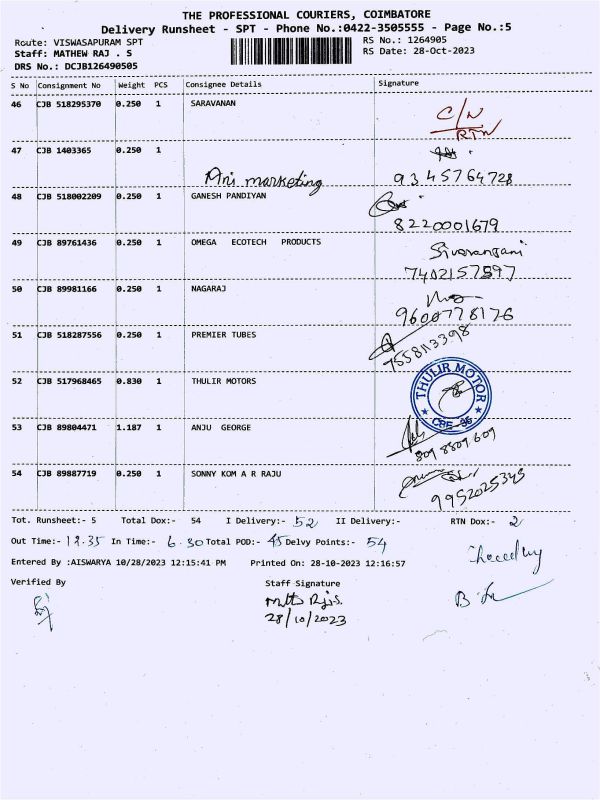 THE PROFESSIONAL COURIERS, COIMBATORE
Delivery Runsheet - SPT - Phone No.:0422-3505555 - Page No.:5
Route: VISWASAPURAM SPT
RS No.: 1264905
Staff: MATHEW RAJ . S
RS Date: 28-Oct-2023
DRS No.: DCJB126490505
S No Consignment No Weight PCS Consignee Details Signature
46 CJB 518295370 0.250 1 SARAVANAN
C/N
RTN
47 CJB 1403365 0.250 1
Ani marketing 9345764728
48 CJB 518002209 0.250 1 GANESH PANDIYAN
8220001679
49 CJB 89761436 0.250 1 OMEGA ECOTECH PRODUCTS Sivaranjani
7402157597
50 CJB 89981166 0.250 1 NAGARAJ
9600778176
51 CJB 518287556 0.250 1 PREMIER TUBES
7558113398
52 CJB 517968465 0.830 1 THULIR MOTORS
THULIR MOTOR
CBE-35
53 CJB 89804471 1.187 1 ANJU GEORGE
8098809609
54 CJB 89887719 0.250 1 SONNY KOM A R RAJU
9952025345
Tot. Runsheet:- 5 Total Dox:- 54 I Delivery:- 52 II Delivery:- RTN Dox:- 2
Out Time:- 12.35 In Time:- 6.30 Total POD:- 45 Delvy Points:- 54
Entered By :AISWARYA 10/28/2023 12:15:41 PM Printed On: 28-10-2023 12:16:57
Verified By Staff Signature
28/10/2023